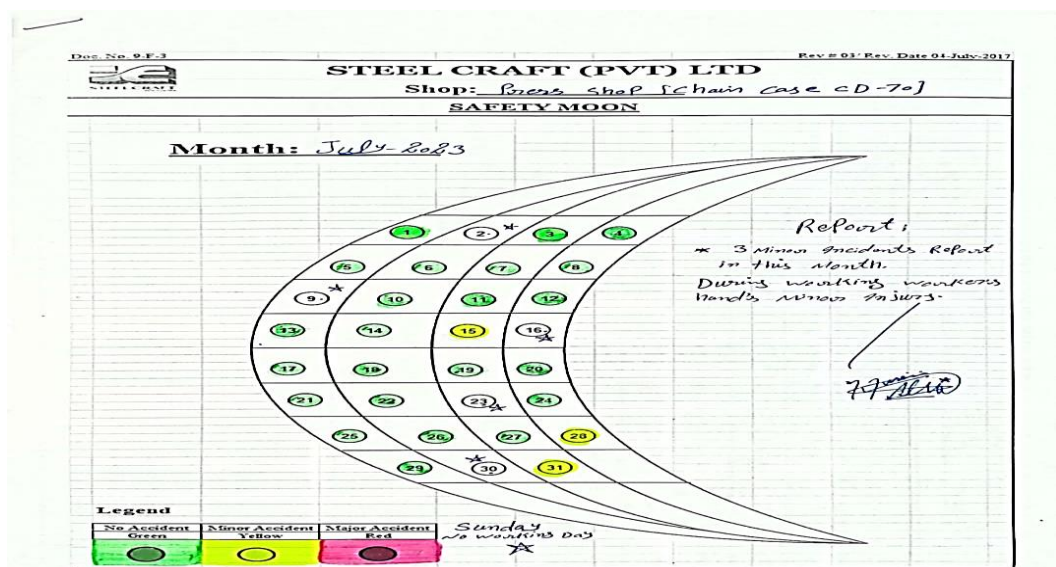 Doc. No. 9-F-3
Rev # 03/ Rev. Date 04-July-2017
STEELCRAFT
STEEL CRAFT (PVT) LTD
Shop: Press Shop [Chain Case CD-70]
SAFETY MOON
Month: July-2023
1 2 3 4
5 6 7 8
9 10 11 12
13 14 15 16
17 18 19 20
21 22 23 24
25 26 27 28
29 30 31
Report:
* 3 Minor Incidents Report
in this Month.
During working workers
hand's Minor Injury.
Legend
No Accident Minor Accident Major Accident
Green Yellow Red
Sunday
No Working Day